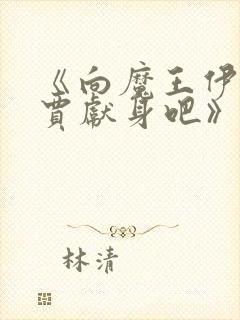 《向魔王伊
賈獻身吧》
林清